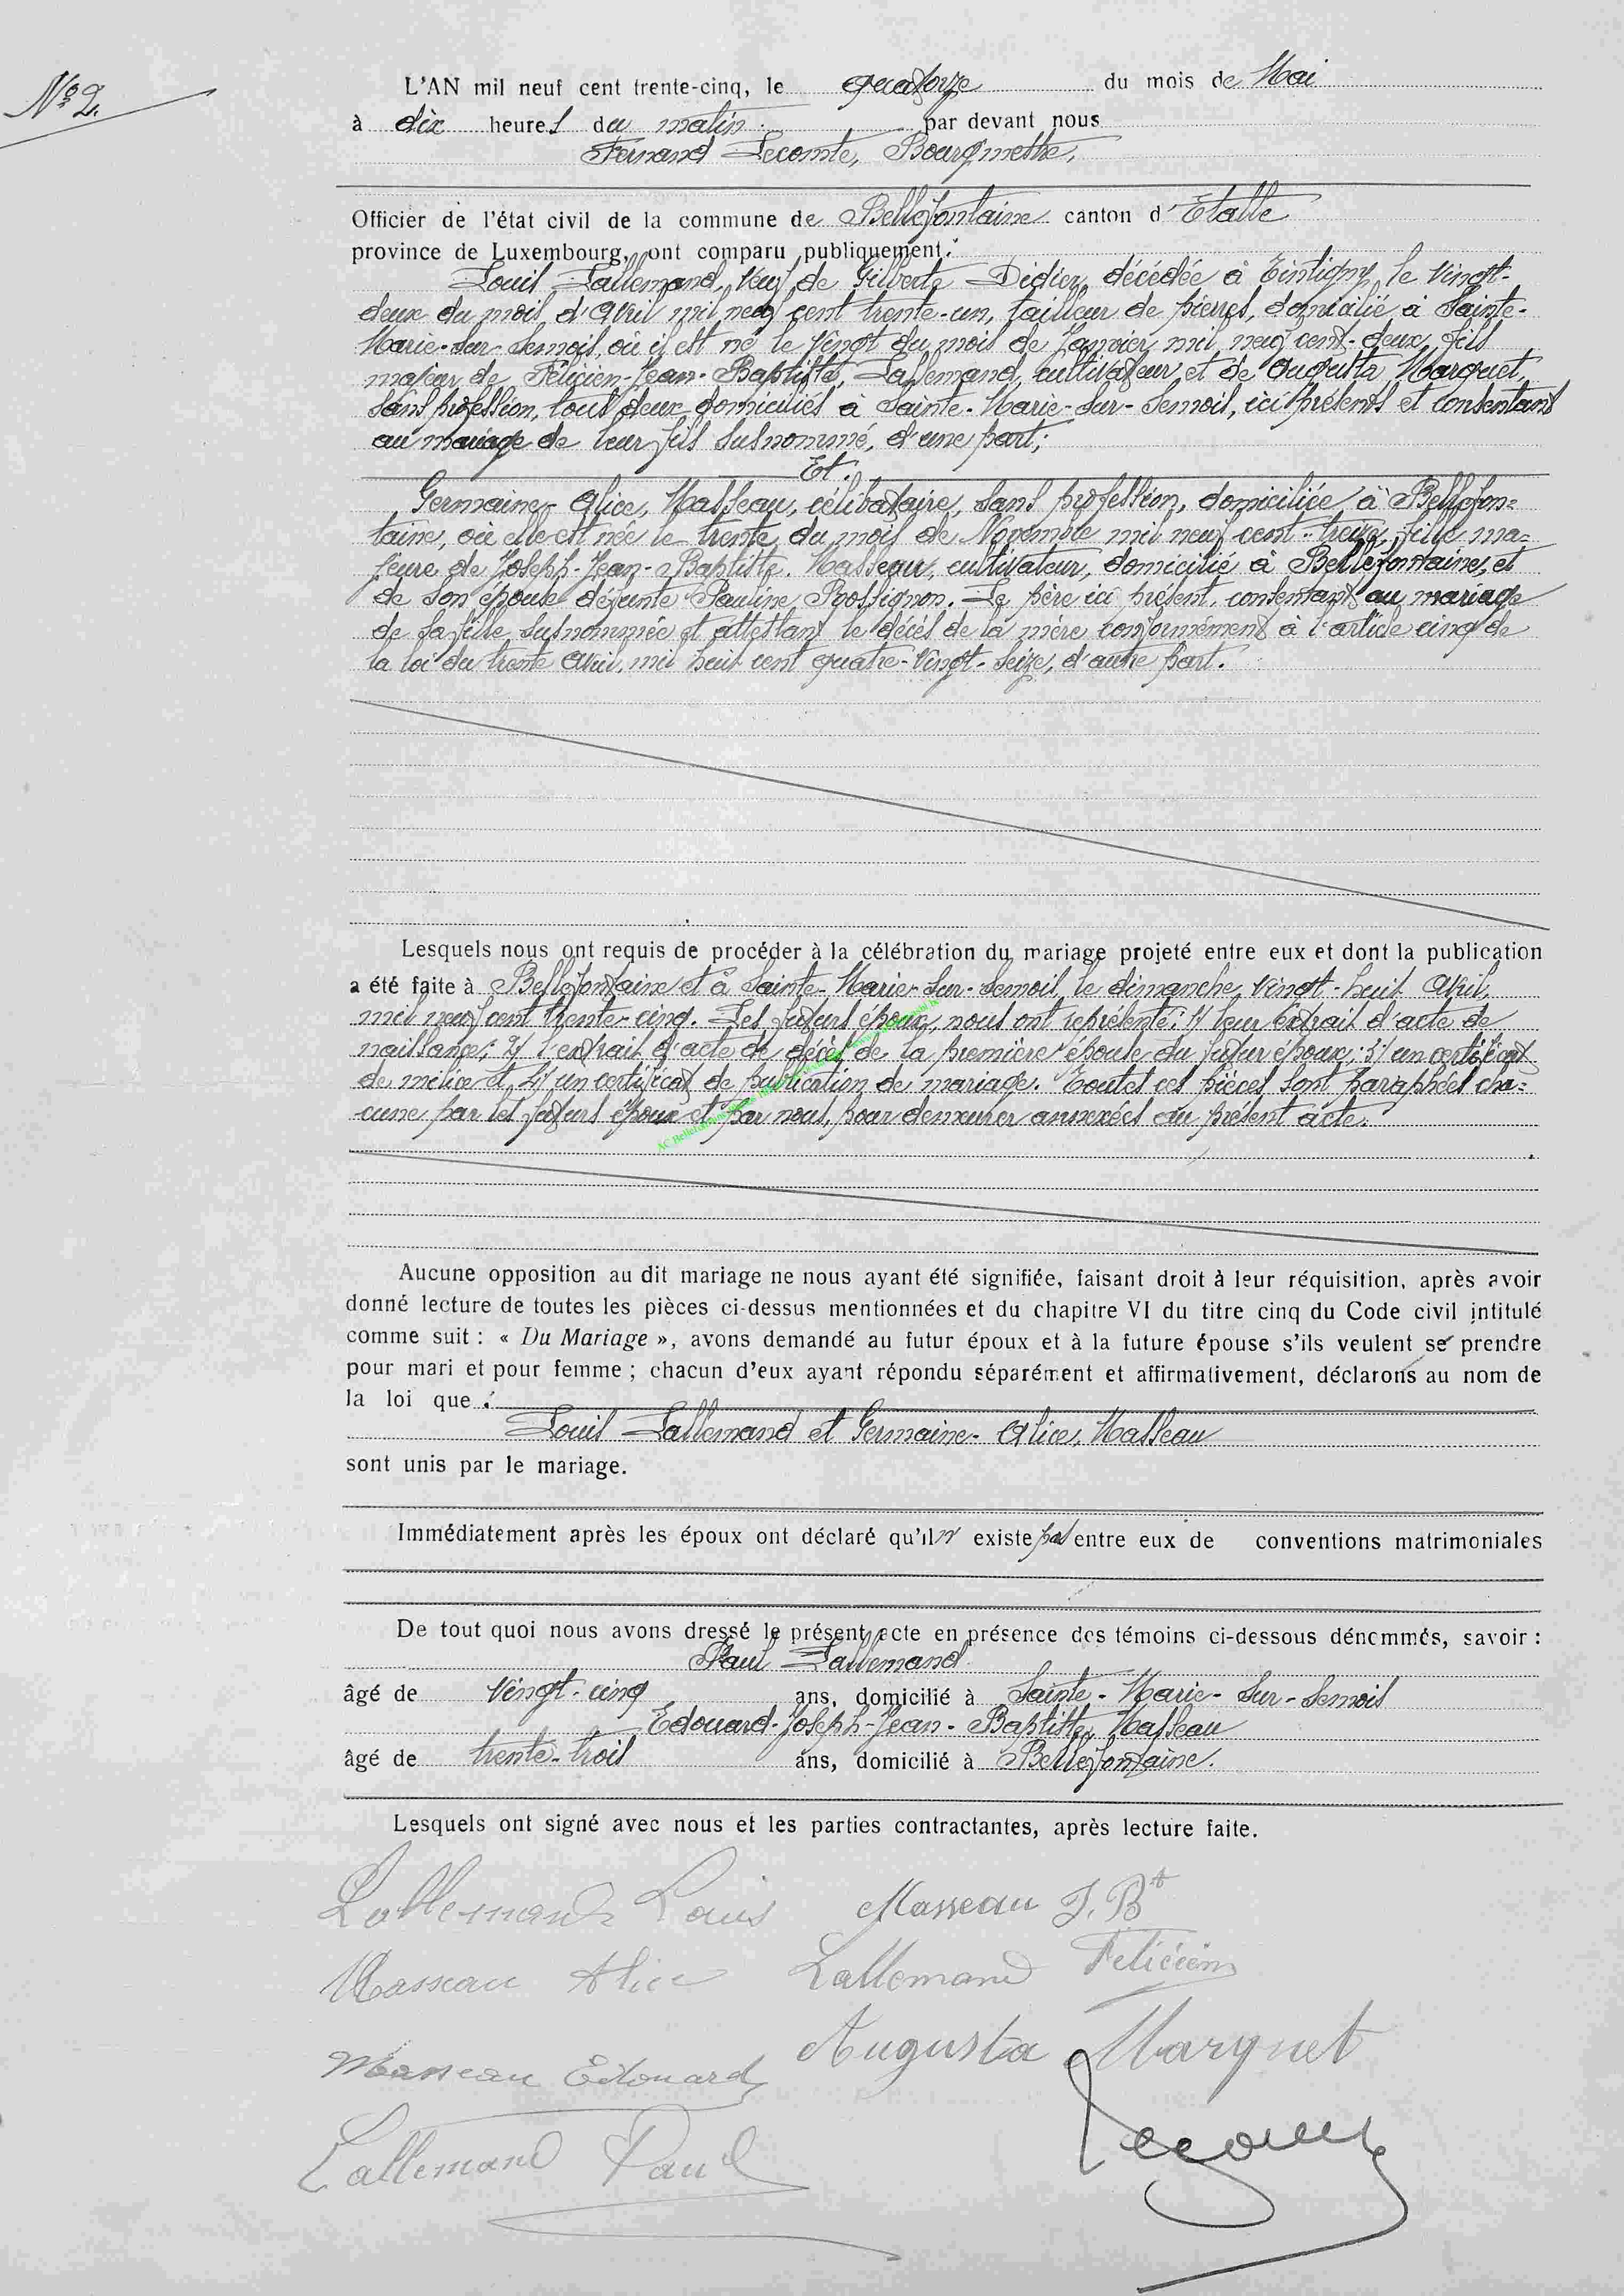 N° 2.
L'AN mil neuf cent trente-cinq, le quatorze du mois de Mai
à dix heures du matin. par devant nous
Fernand Lecomte, Bourgmestre,
Officier de l'état civil de la commune de Bellefontaine canton d'Etalle
province de Luxembourg, ont comparu publiquement :
Louis Lallemand, veuf de Gilberte Didier, décédée à Tintigny, le vingt-
deux du mois d'Avril mil neuf cent trente-un, tailleur de pierres, domicilié à Sainte-
Marie-sur-Semois, où il est né le vingt du mois de Janvier mil neuf cent-deux, fils
majeur de Félicien-Jean-Baptiste, Lallemand, cultivateur et de Augusta Marquet,
sans profession, tous deux domiciliés à Sainte-Marie-sur-Semois, ici présents et consentants
au mariage de leur fils susnommé, d'une part;
Et.
Germaine-Alice, Masseau, célibataire, sans profession, domiciliée à Bellefon=
taine, où elle est née le trente du mois de Novembre mil neuf cent-treize, fille ma=
jeure de Joseph-Jean-Baptiste. Masseau, cultivateur, domicilié à Bellefontaine, et
de son épouse défunte Pauline Rossignon. Le père ici présent, consentant au mariage
de sa fille susnommée et attestant le décès de la mère conformément à l'article cinq de
la loi du trente Avril, mil huit cent quatre-vingt-seize, d'autre part.
Lesquels nous ont requis de procéder à la célébration du mariage projeté entre eux et dont la publication
a été faite à Bellefontaine et à Sainte-Marie-sur-Semois, le dimanche vingt-huit Avril,
mil neuf cent trente-cinq. Les futurs époux, nous ont représenté: 1/ leur extrait d'acte de
naissance; 2/ l'extrait d'acte de décès de la première épouse du futur époux; 3/ un certificat
de milice et 4/ un certificat de publication de mariage. Toutes ces pièces sont paraphées cha=
cune par les futurs époux et par nous, pour demeurer annexées au présent acte.
AC Bellefontaine
Aucune opposition au dit mariage ne nous ayant été signifiée, faisant droit à leur réquisition, après avoir
donné lecture de toutes les pièces ci-dessus mentionnées et du chapitre VI du titre cinq du Code civil intitulé
comme suit : « Du Mariage », avons demandé au futur époux et à la future épouse s'ils veulent se prendre
pour mari et pour femme ; chacun d'eux ayant répondu séparément et affirmativement, déclarons au nom de
la loi que :
Louis Lallemand et Germaine-Alice, Masseau
sont unis par le mariage.
Immédiatement après les époux ont déclaré qu'il n'existe pas entre eux de conventions matrimoniales
De tout quoi nous avons dressé le présent acte en présence des témoins ci-dessous dénommés, savoir :
Paul Lallemand
âgé de vingt-cinq ans, domicilié à Sainte-Marie-sur-Semois
Edouard-Joseph-Jean-Baptiste, Masseau
âgé de trente-trois ans, domicilié à Bellefontaine.
Lesquels ont signé avec nous et les parties contractantes, après lecture faite.
Lallemand Louis Masseau J. Bte
Masseau Alice Lallemand Félicien
Masseau Edouard Augusta Marquet
Lallemand Paul Lecomte